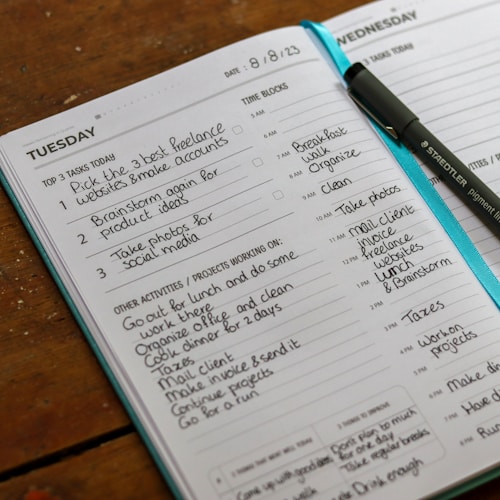 DATE : 8/8/23
TUESDAY
TOP 3 TASKS TODAY
1 Pick the 3 best freelance
websites & make accounts
2 Brainstorm again for
product ideas
3 Take photos for
social media
OTHER ACTIVITIES / PROJECTS WORKING ON:
Go out for lunch and do some
work there
Organize office and clean
Cook dinner for 2 days
Taxes
Mail client
Make invoice & send it
Continue projects
Go for a run
TIME BLOCKS
5 AM
6 AM
7 AM Breakfast
walk
8 AM Organize
9 AM clean
10 AM Take photos
11 AM mail client
invoice
12 PM freelance
websites
1 PM lunch
& Brainstorm
2 PM
3 PM Taxes
4 PM Work on
projects
5 PM
6 PM Make din
7 PM Have di
8 PM Run
3 THINGS THAT WENT WELL TODAY
Came up with good
3 THINGS TO IMPROVE
Don't plan to much
for one day
Take regular breaks
Drink enough
WEDNESDAY
TOP 3 TASKS TODAY
OTHER ACTIVITIES /
STAEDTLER pigment lin